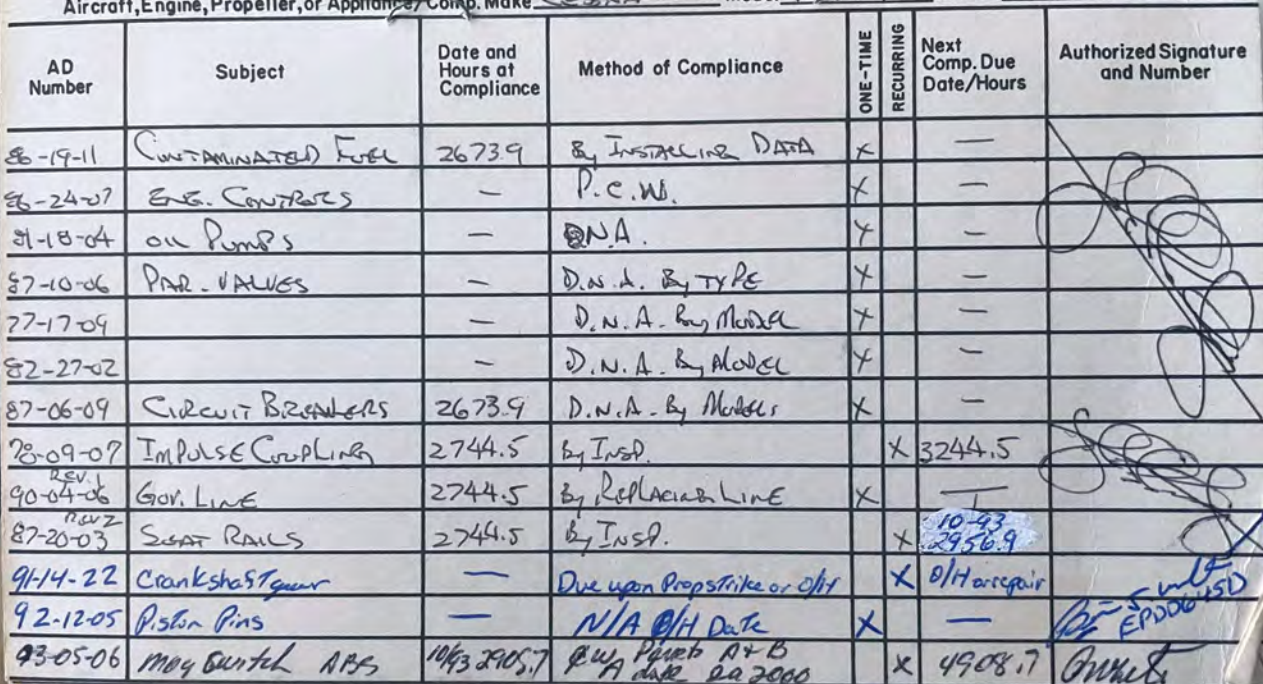 Aircraft, Engine, Propeller, or Appliance/Comp. Make
AD Number Subject Date and Hours at Compliance Method of Compliance ONE-TIME RECURRING Next Comp. Due Date/Hours Authorized Signature and Number
86-19-11 CONTAMINATED FUEL 2673.9 By INSTALLING DATA X —
86-24-07 ENG. CONTROLS — P.C.W. X —
81-18-04 OIL PUMPS — D.N.A. X —
87-10-06 PAR. VALVES — D.N.A. By TYPE X —
77-17-09 — D.N.A. By MODEL X —
82-27-02 — D.N.A. By MODEL X —
87-06-09 CIRCUIT BREAKERS 2673.9 D.N.A. By Models X —
78-09-07 IMPULSE COUPLING 2744.5 By INSP. X 3244.5
90-04-06 REV. 1 GOV. LINE 2744.5 By REPLACING LINE X —
87-20-03 REV 2 SEAT RAILS 2744.5 By INSP. X 10-93 2956.9
91-14-22 Crankshaft gear — Due upon Propstrike or O/H X O/H or repair
92-12-05 Piston Pins — N/A O/H Date X — EPDD
93-05-06 Mag Switch ABS 10/93 2905.7 A + B 2000 X 4908.7